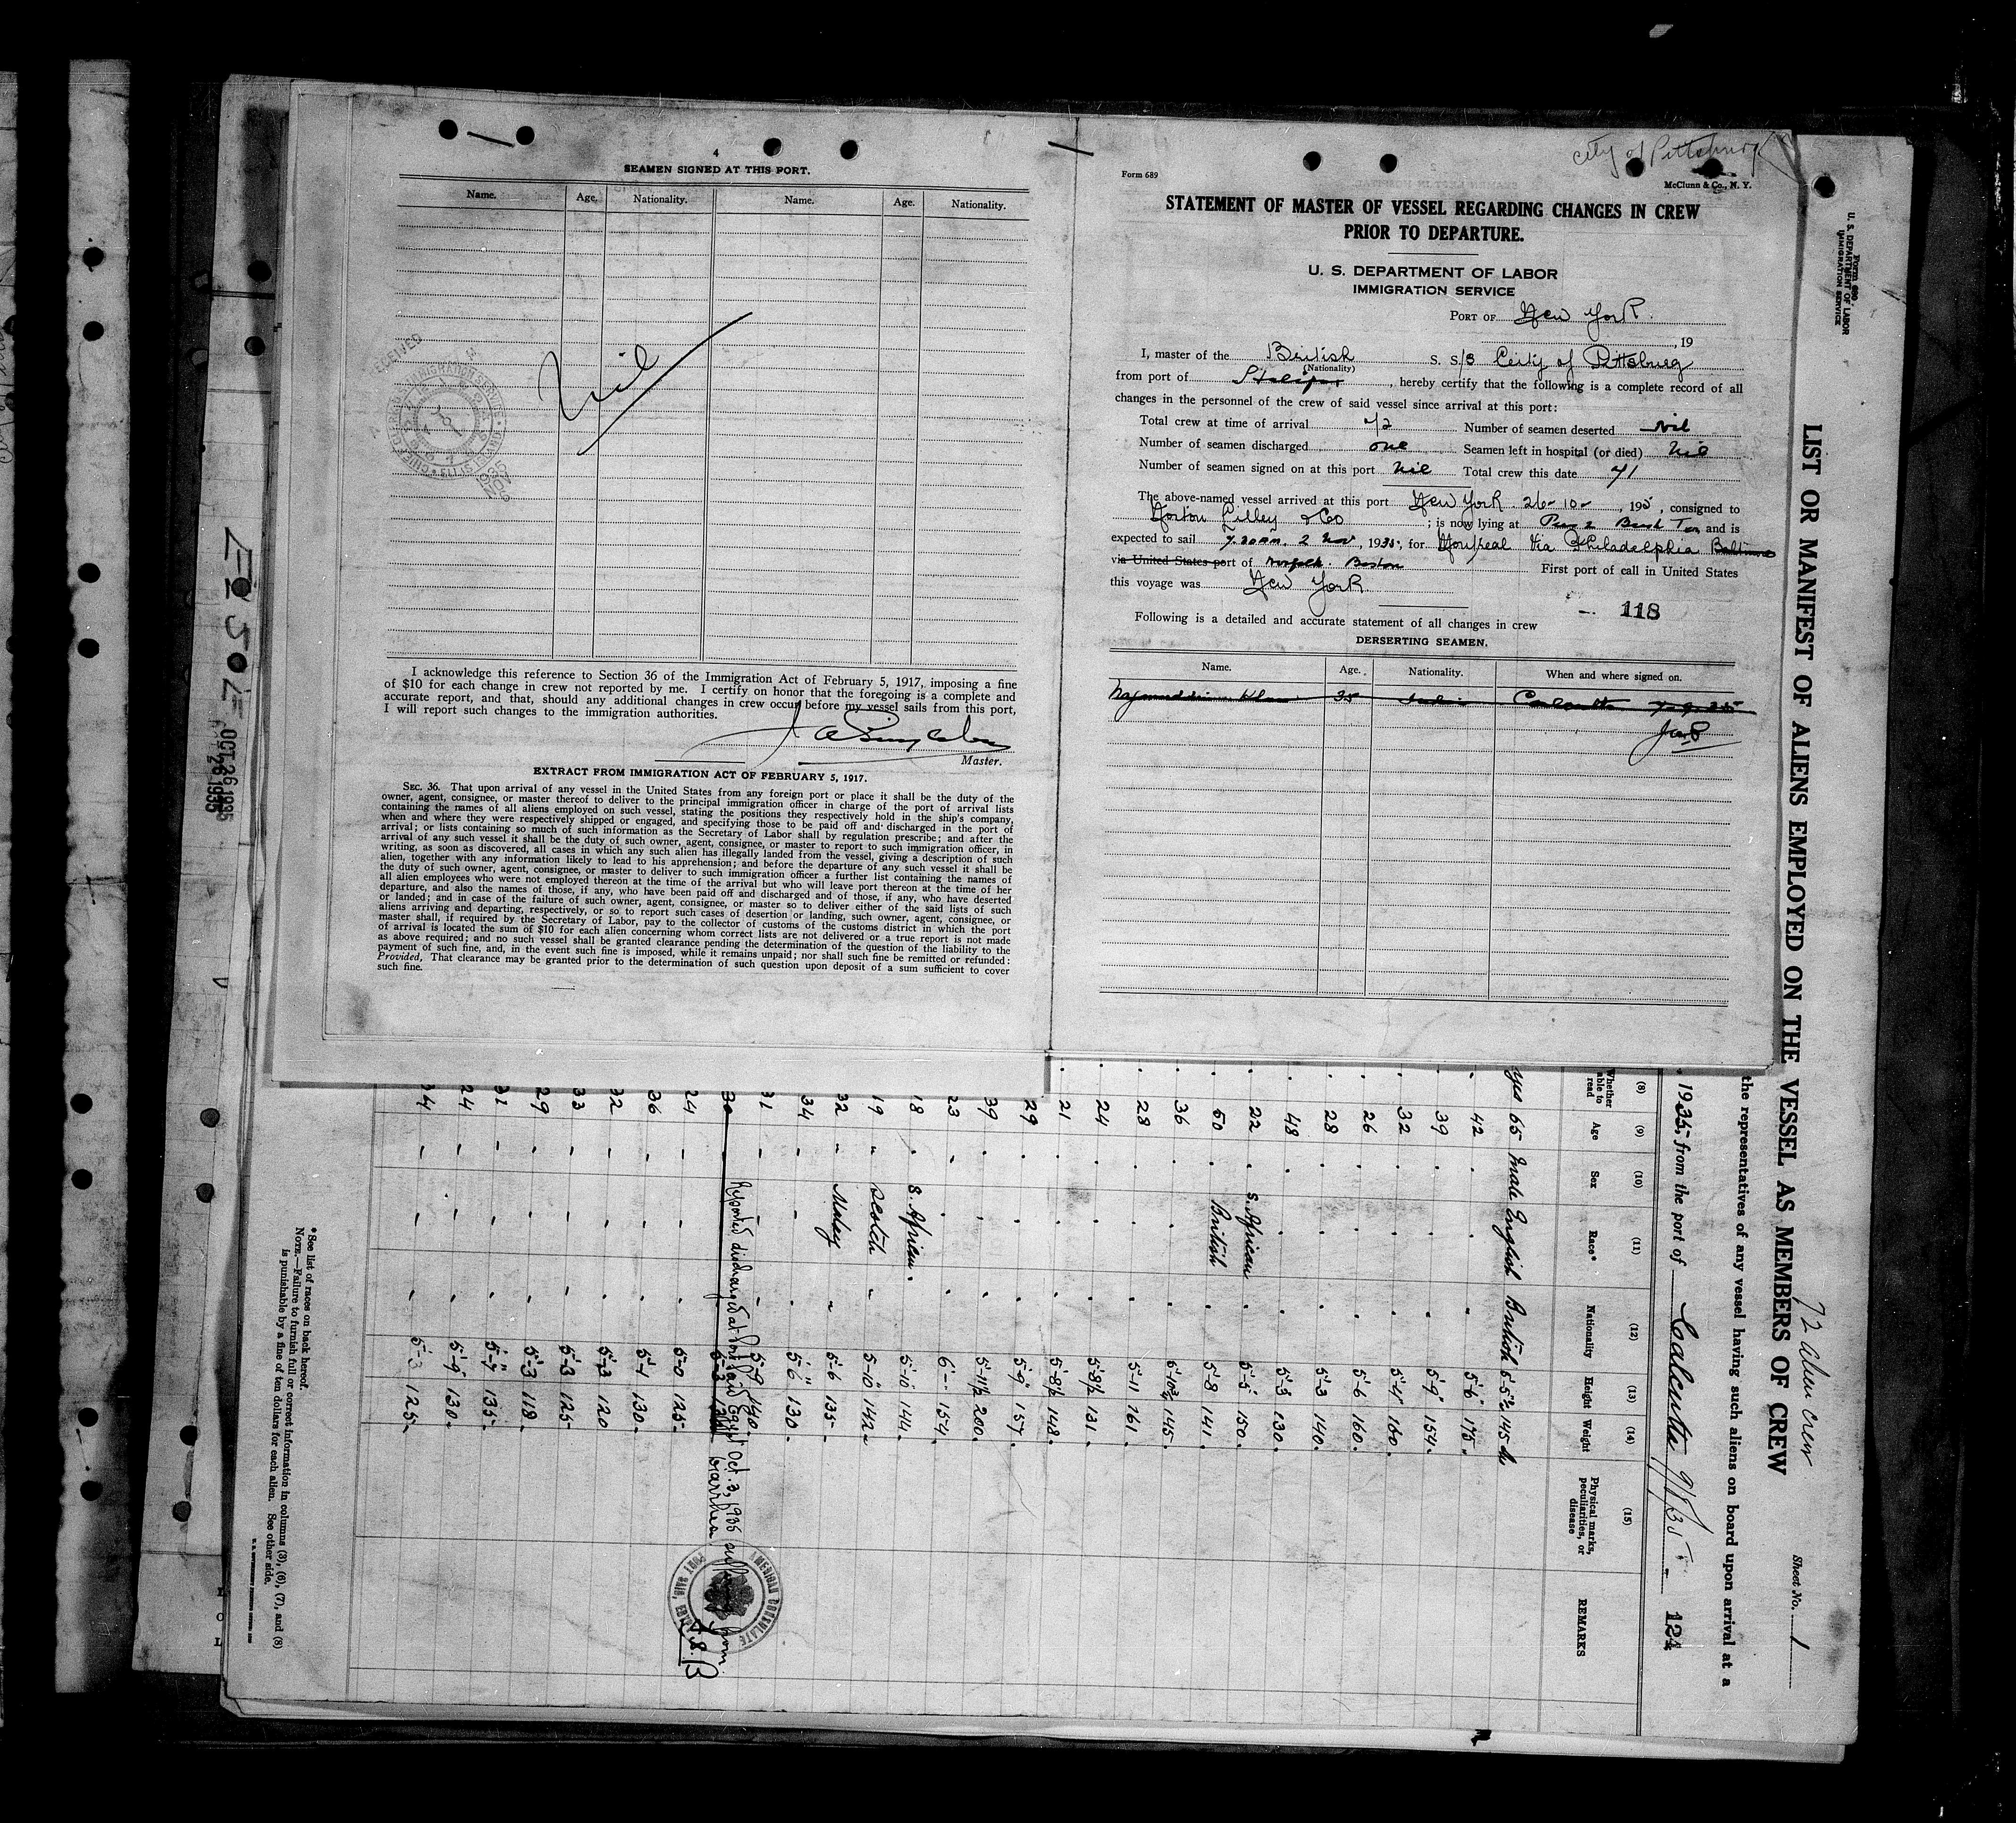 4
SEAMEN SIGNED AT THIS PORT.
Name. Age. Nationality. Name. Age. Nationality.
Nil
I acknowledge this reference to Section 36 of the Immigration Act of February 5, 1917, imposing a fine
of $10 for each change in crew not reported by me. I certify on honor that the foregoing is a complete and
accurate report, and that, should any additional changes in crew occur before my vessel sails from this port,
I will report such changes to the immigration authorities.
Master.
EXTRACT FROM IMMIGRATION ACT OF FEBRUARY 5, 1917.
SEC. 36. That upon arrival of any vessel in the United States from any foreign port or place it shall be the duty of the
owner, agent, consignee, or master thereof to deliver to the principal immigration officer in charge of the port of arrival lists
containing the names of all aliens employed on such vessel, stating the positions they respectively hold in the ship's company,
when and where they were respectively shipped or engaged, and specifying those to be paid off and discharged in the port of
arrival; or lists containing so much of such information as the Secretary of Labor shall by regulation prescribe; and after the
arrival of any such vessel it shall be the duty of such owner, agent, consignee, or master to report to such immigration officer, in
writing, as soon as discovered, all cases in which any such alien has illegally landed from the vessel, giving a description of such
alien, together with any information likely to lead to his apprehension; and before the departure of any such vessel it shall be
the duty of such owner, agent, consignee, or master to deliver to such immigration officer a further list containing the names of
all alien employees who were not employed thereon at the time of the arrival but who will leave port thereon at the time of her
departure, and also the names of those, if any, who have been paid off and discharged and of those, if any, who have deserted
or landed; and in case of the failure of such owner, agent, consignee, or master so to deliver either of the said lists of such
aliens arriving and departing, respectively, or so to report such cases of desertion or landing, such owner, agent, consignee, or
master shall, if required by the Secretary of Labor, pay to the collector of customs of the customs district in which the port
of arrival is located the sum of $10 for each alien concerning whom correct lists are not delivered or a true report is not made
as above required; and no such vessel shall be granted clearance pending the determination of the question of the liability to the
payment of such fine, and, in the event such fine is imposed, while it remains unpaid; nor shall such fine be remitted or refunded:
Provided, That clearance may be granted prior to the determination of such question upon deposit of a sum sufficient to cover
such fine.
City of Pittsburg
Form 689
McClunn & Co., N. Y.
STATEMENT OF MASTER OF VESSEL REGARDING CHANGES IN CREW
PRIOR TO DEPARTURE.
U. S. DEPARTMENT OF LABOR
IMMIGRATION SERVICE
PORT OF New York.
, 19
I, master of the British S. S/S City of Pittsburg
(Nationality)
from port of Halifax, hereby certify that the following is a complete record of all
changes in the personnel of the crew of said vessel since arrival at this port:
Total crew at time of arrival 72 Number of seamen deserted Nil
Number of seamen discharged one Seamen left in hospital (or died) Nil
Number of seamen signed on at this port Nil Total crew this date 71
The above-named vessel arrived at this port New York 26-10-, 1935, consigned to
Norton Lilley & Co; is now lying at Pier 2 Bush Ter and is
expected to sail 7.30am. 2 Nov, 1935, for Montreal Via Philadelphia Baltimore
via United States port of Norfolk. Boston First port of call in United States
this voyage was New York
118
Following is a detailed and accurate statement of all changes in crew
DERSERTING SEAMEN.
Name. Age. Nationality. When and where signed on.
Khan 35 India Calcutta
Form 680
U. S. DEPARTMENT OF LABOR
IMMIGRATION SERVICE
72 alien crew
Sheet No. 1
LIST OR MANIFEST OF ALIENS EMPLOYED ON THE VESSEL AS MEMBERS OF CREW
the representatives of any vessel having such aliens on board upon arrival at a
, 1935, from the port of Calcutta 9/9/35 124
(8) (9) (10) (11) (12) (13) (14) (15)
Whether able to read Age Sex Race* Nationality Height Weight Physical marks, peculiarities, or disease REMARKS
yes 55 Male English British 5-5½ 145
42 5-6 175
39 5-9 154
32 5-4 160
26 5-6 160
28 5-3 140
48 5-3 130
22 S. African 5-5 150
50 British 5-8 141
36 5-10¾ 145
28 5-11 161
24 5-8½ 131
21 5-8½ 148
29 5-9 157
39 5-11½ 200
23 6- 154
18 S. African 5-10 144
19 Scotch 5-10 142
32 Malay 5-6 135
34 5-6 130
31 5-9 140
30 5-3
Reported discharged at Port Said Egypt Oct. 3, 1935 suffering from
diarrhea
AMERICAN CONSULATE
PORT SAID, EGYPT
24 5-0 125
36 5-1 130
32 5-3 120
33 5-3 125
29 5-3 118
31 5-7 135
24 5-9 130
34 5-3 125
* See list of races on back hereof.
NOTE.—Failure to furnish full or correct information in columns (3), (6), (7), and (8)
is punishable by a fine of ten dollars for each alien. See other side.
OCT 26 1935